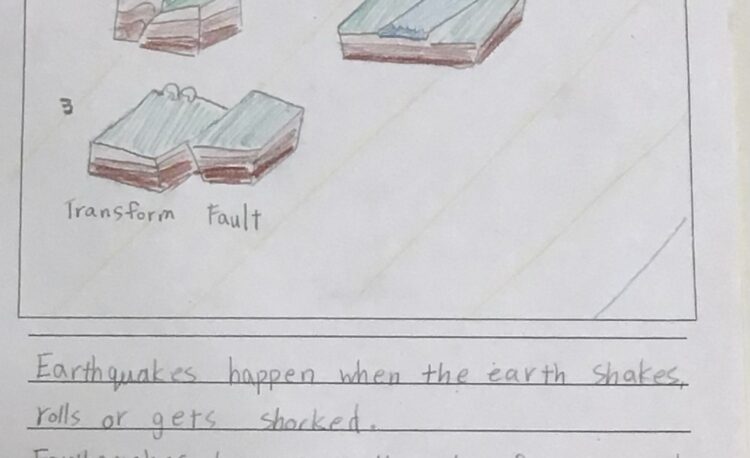 3
Transform Fault
Earthquakes happen when the earth shakes,
rolls or gets shocked.